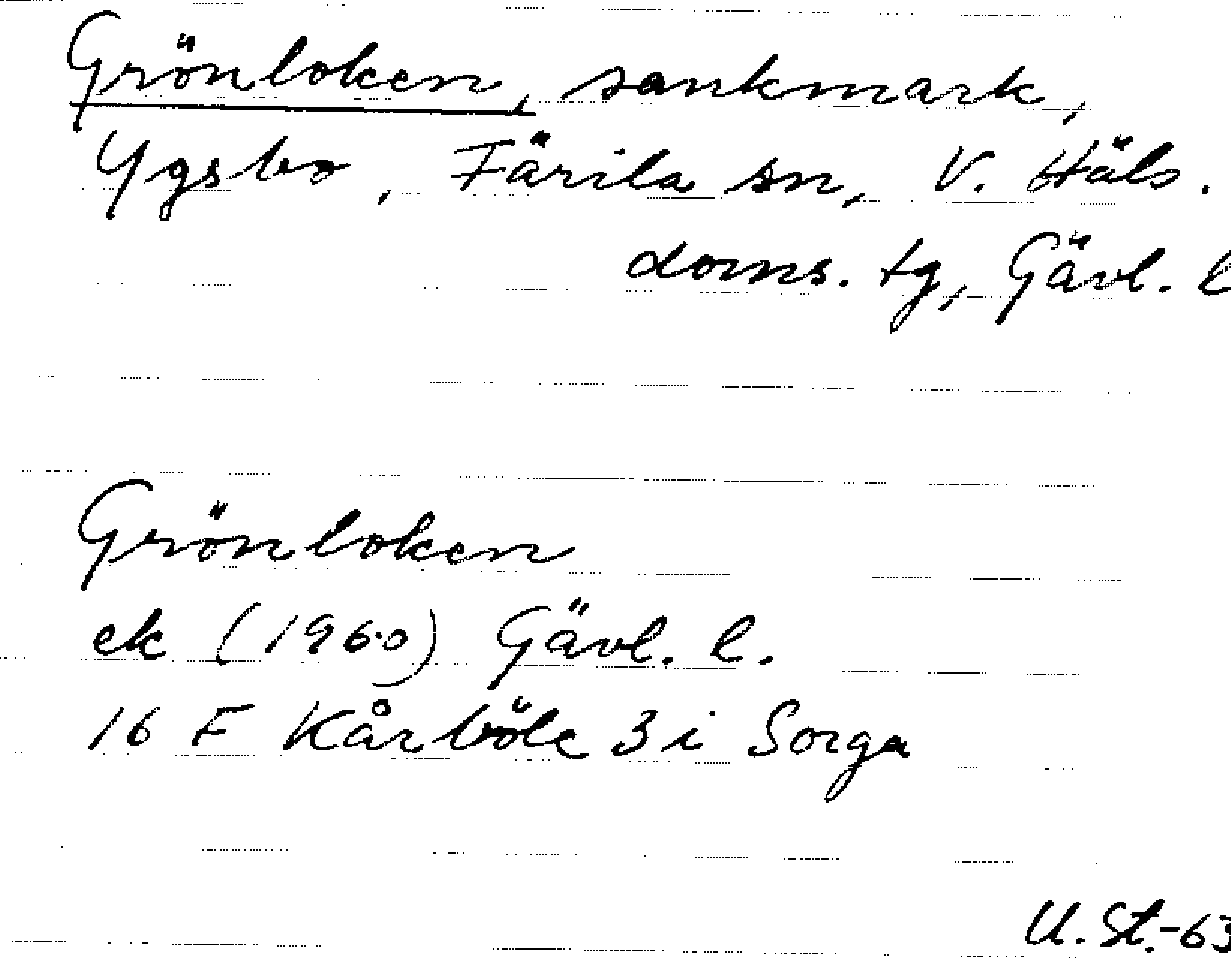 Grönloken, sankmark,
Ygsbo, Färila sn, V. Häls.
doms. tg, Gävl. l
Grönloken
ek (1960) Gävl. l.
16 F Kårböle 3 i Sorga
U. St.-63